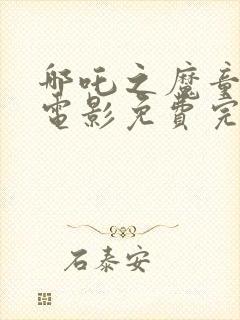 哪吒之魔童
电影免费完
石泰安